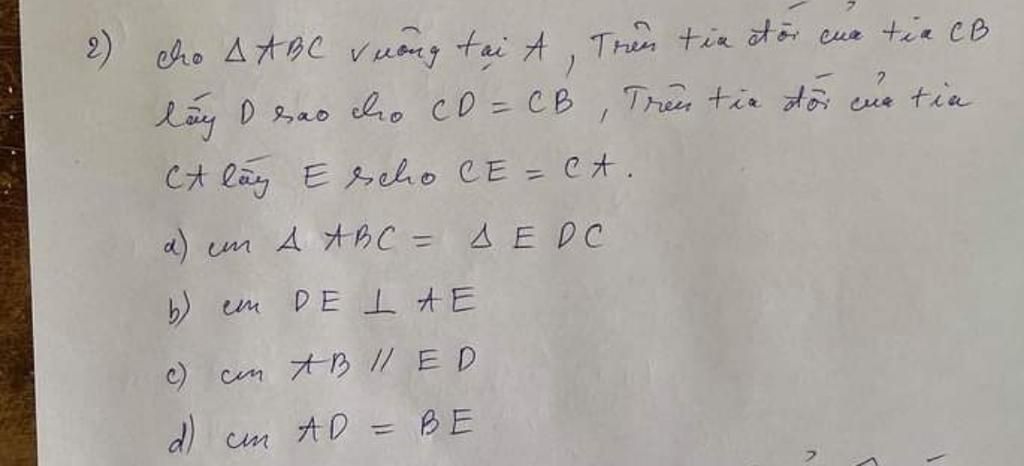 2) cho Δ ABC vuông tại A, Trên tia đối của tia CB
lấy D sao cho CD = CB, Trên tia đối của tia
CA lấy E scho CE = CA.
a) cm Δ ABC = Δ EDC
b) cm DE ⊥ AE
c) cm AB // ED
d) cm AD = BE